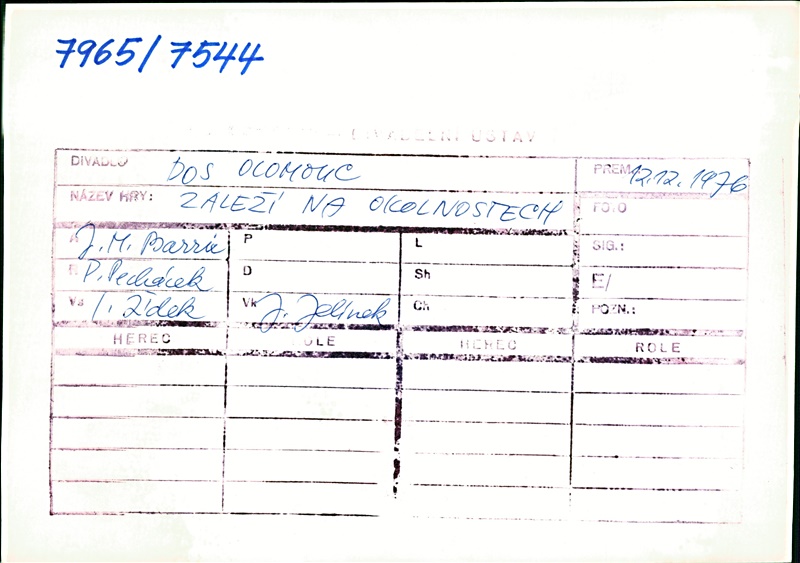 7965/7544
DIVADELNÍ ÚSTAV
DIVADLO DOS OLOMOUC PREM. 12.12.1976
NÁZEV HRY: ZÁLEŽÍ NA OKOLNOSTECH FOTO
A J. M. Barrie P L SIG.:
R P. Pecháček D Sh E/
Vs Židek Vk J. Jelínek Ch POZN.:
HEREC ROLE HEREC ROLE